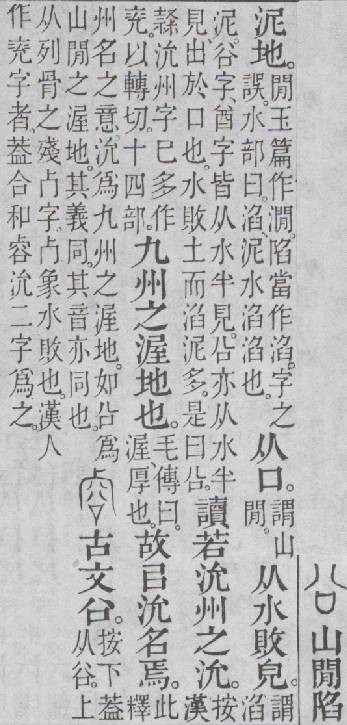 㕣 山閒陷
泥地。閒玉篇作澗。陷當作淊。字之誤。水部曰。淊泥水淊淊也。从口。謂山閒。从水敗皃。謂淊
泥。谷字、酋字皆从水半見。㕣亦从水半見出於口也。水敗土而淊泥多。是曰㕣。讀若沇州之沇。按漢
隷沇州字巳多作兖。以轉切。十四部。九州之渥地也。毛傳曰。渥、厚也。故㠯沇名焉。此釋
州名之意。沇爲九州之渥地。如㕣爲山閒之渥地。其義同。其音亦同也。古文㕣。按下葢从谷。上
从列骨之殘卢字。卢象水敗也。漢人作兖字者、葢合和睿沇二字爲之。